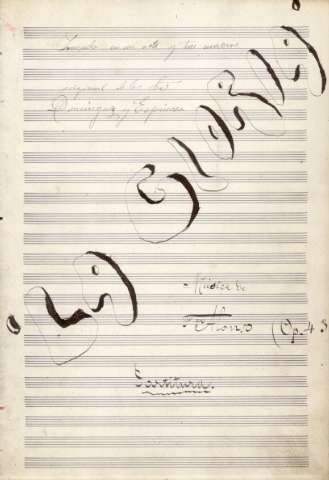 Zarzuela en un acto y tres cuadros
original de los Sres
Dominguez y Espinosa
"La Gloria"
Música de
F. Alonso
(Op. 43
Partitura.